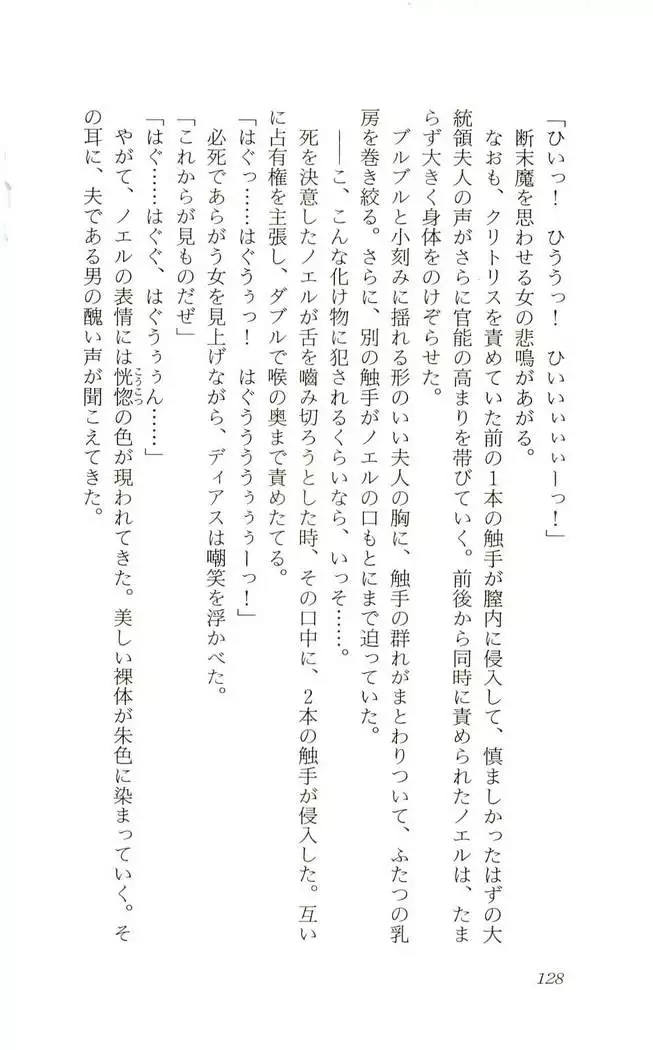 「ひいっ！　ひううっ！　ひいぃぃぃぃーっ！」
断末魔を思わせる女の悲鳴があがる。
なおも、クリトリスを責めていた前の1本の触手が膣内に侵入して、慎ましかったはずの大
統領夫人の声がさらに官能の高まりを帯びていく。前後から同時に責められたノエルは、たま
らず大きく身体をのけぞらせた。
ブルブルと小刻みに揺れる形のいい夫人の胸に、触手の群れがまとわりついて、ふたつの乳
房を巻き絞る。さらに、別の触手がノエルの口もとにまで迫っていた。
――こ、こんな化け物に犯されるくらいなら、いっそ……。
死を決意したノエルが舌を嚙み切ろうとした時、その口中に、2本の触手が侵入した。互い
に占有権を主張し、ダブルで喉の奥まで責めたてる。
「はぐっ……はぐうぅっ！　はぐうううぅぅぅーっ！」
必死であらがう女を見上げながら、ディアスは嘲笑を浮かべた。
「これからが見ものだぜ」
「はぐ……はぐぐ、はぐうぅぅん……」
やがて、ノエルの表情には恍惚こうこつの色が現われてきた。美しい裸体が朱色に染まっていく。そ
の耳に、夫である男の醜い声が聞こえてきた。
128